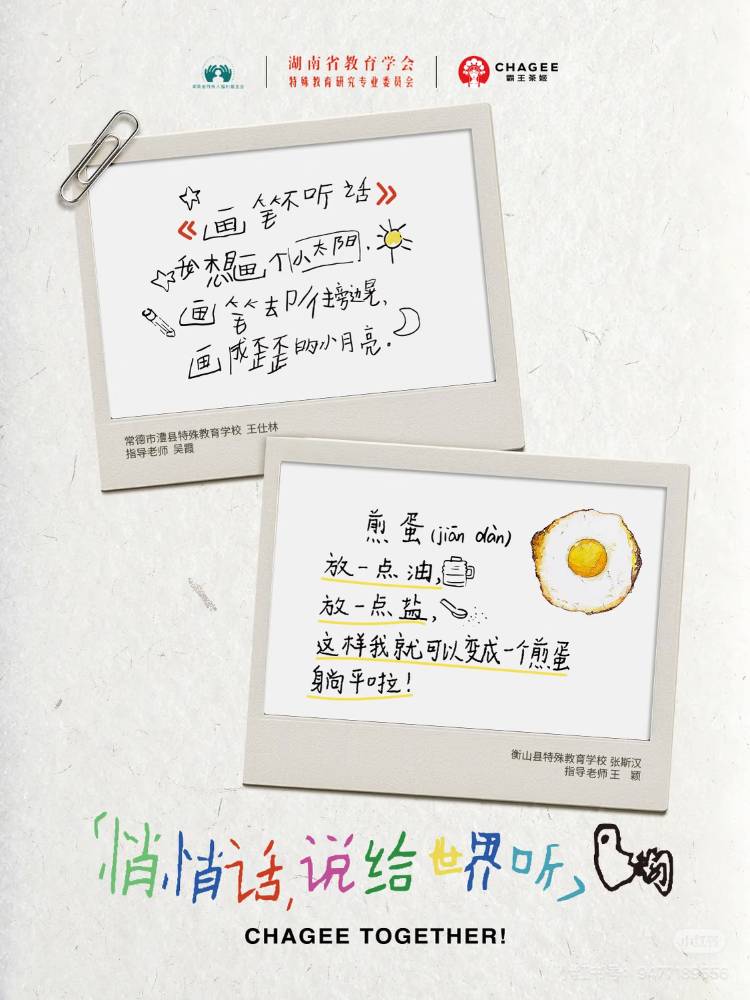 湖南省残疾人福利基金会
湖南省教育学会
特殊教育研究专业委员会
CHAGEE
霸王茶姬
《画笔不听话》
我想画个小太阳,
画笔却往旁边晃,
画成歪歪的小月亮.
常德市澧县特殊教育学校 王仕林
指导老师 吴霞
煎蛋(jiān dàn)
放一点油,
放一点盐,
这样我就可以变成一个煎蛋
躺平啦!
衡山县特殊教育学校 张斯汉
指导老师 王 颖
「悄悄话,说给世界听」
CHAGEE TOGETHER!
小红书
小红书号: 9477189556